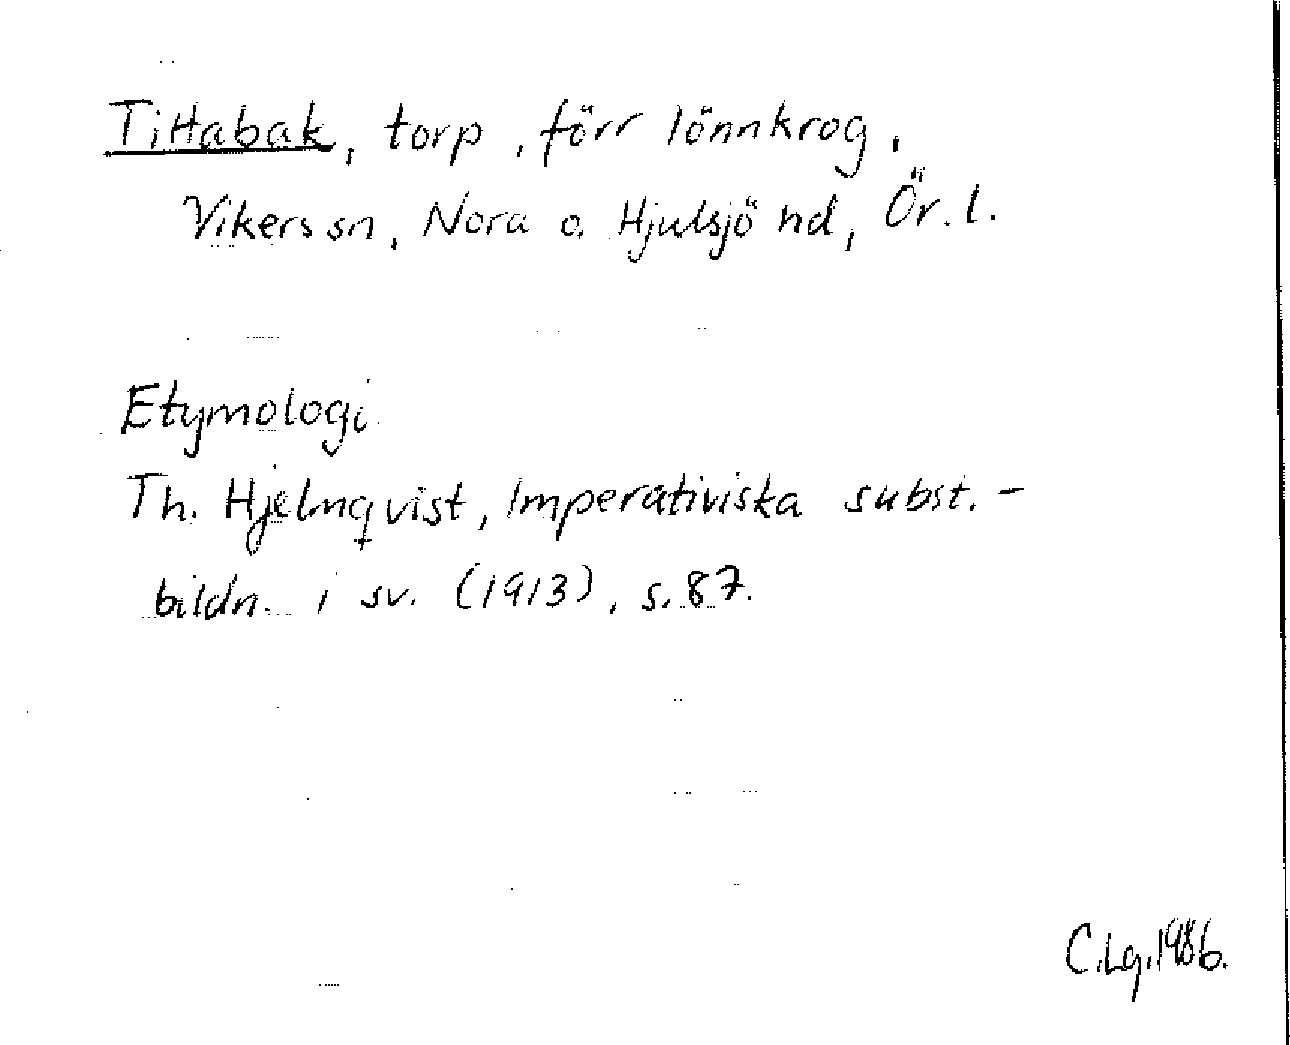 Tittabak, torp, förr lönnkrog,
Vikers sn, Nora o. Hjulsjö hd, Ör. l.
Etymologi
Th. Hjelmqvist, Imperativiska subst.-
bildn. i sv. (1913), s. 87.
C.Lg.1986.